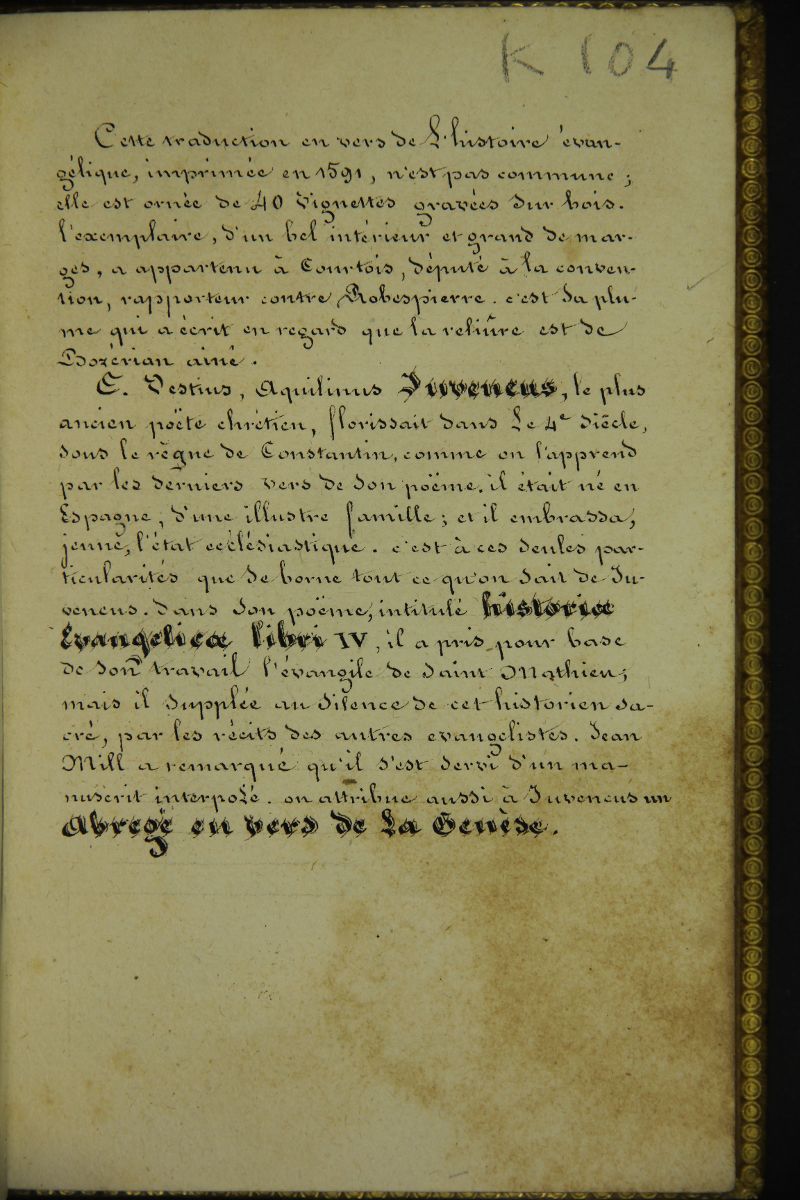 K 104
Cette traduction en vers de l'histoire évan-
gélique, imprimée en 1591, n'est pas commune ;
elle est ornée de 40 vignettes gravées sur bois.
l'exemplaire, d'un bel intérieur et grand de mar-
ges, a appartenu à Courtois, député à la conven-
tion, rapporteur contre Robespierre. c'est sa plu-
me qui a écrit en regard que la reliure est de
Dozérian ainé.
C. Vestius, Aquilinus Juvencus, le plus
ancien poëte chrétien, florissait dans le 4e siècle,
sous le règne de Constantin, comme on l'apprend
par les derniers vers de son poëme. il était né en
Espagne, d'une illustre famille ; et il embrassa,
jeune, l'état ecclésiastique. c'est à ces seules par-
ticularités que se borne tout ce qu'on sait de Ju-
vencus. dans son poëme, intitulé historiæ
Evangelicæ libri IV, il a pris pour base
de son travail l'évangile de Saint Mathieu ;
mais il supplée au silence de cet historien sa-
cré, par les récits des autres evangelistes. Jean
Mill a remarqué qu'il s'est servi d'un ma-
nuscrit interpolé. on attribue aussi à Juvencus un
Abrégé en vers de la Genèse.